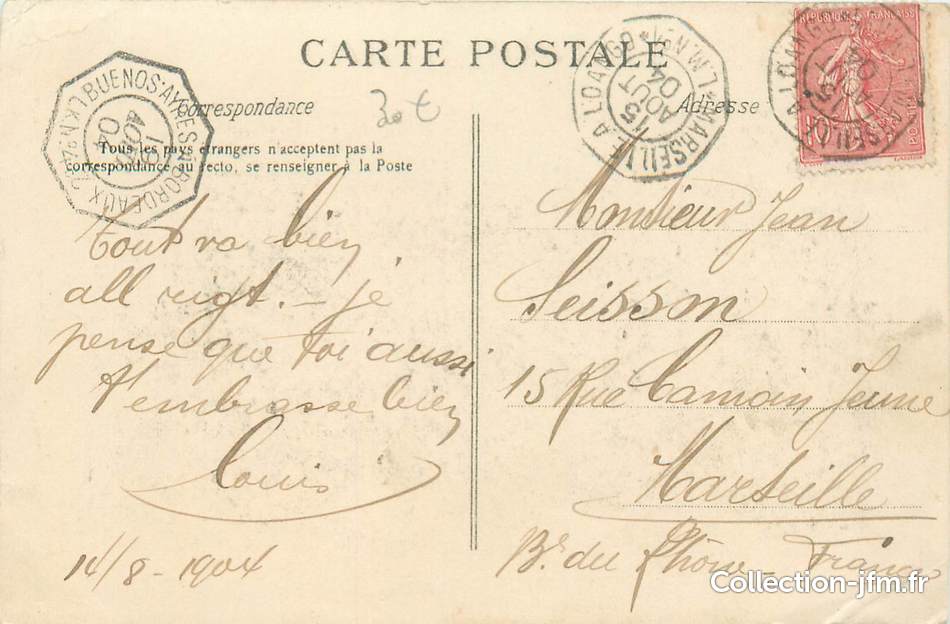 CARTE POSTALE
Correspondance
Adresse
30 €
Tous les pays étrangers n'acceptent pas la
correspondance au recto, se renseigner à la Poste
BUENOS-AYRES A BORDEAUX
L.K Nº
19
AOUT
04
MARSEILLE A LOANGO
L.M. Nº
15
AOUT
04
RÉPUBLIQUE FRANÇAISE
Tout va bien
all rigt. - je
pense que toi aussi
t'embrasse bien
Louis
14/8 - 1904
Monsieur Jean
Seisson
15 Rue Camoin Jeune
Marseille
Bs. du Rhône - France
Collection-jfm.fr